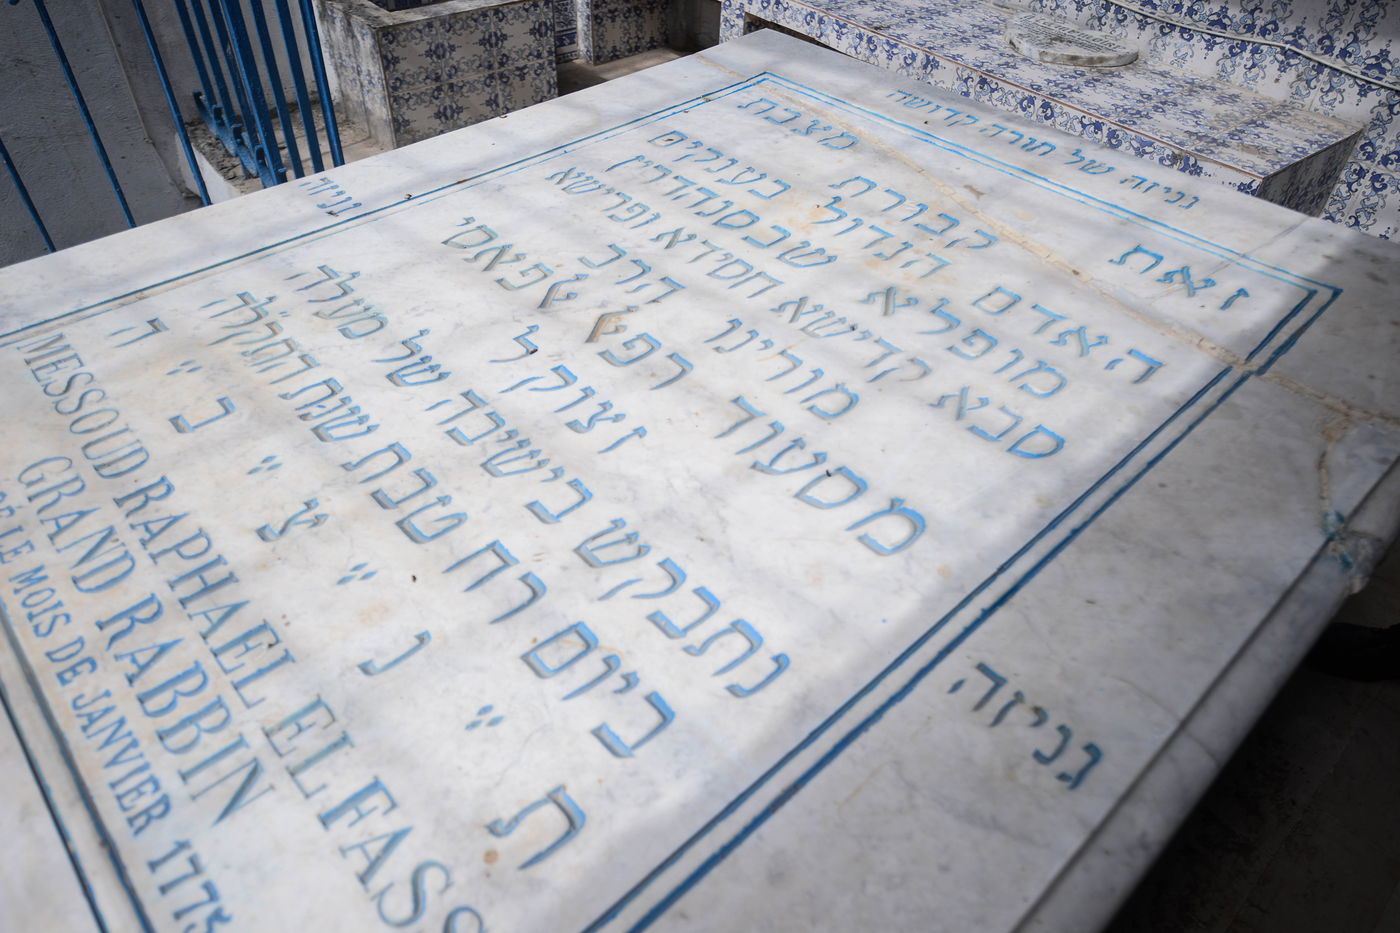 גניזה של תורה קדושה
זאת מצבת
קבורת
האדם הגדול בענקים
מופלא שבסנהדרין
סבא קדישא חסידא ופרישא
מורינו הרב
מסעוד רפאל אלפאסי
זצוק'ל
נתבקש בישיבה של מעלה
ביום רח טבת שנת התקלה
ת " נ " צ " ב " ה
MESSOUD RAPHAEL ELFASS
GRAND RABBIN
LE MOIS DE JANVIER 1775
גניזה
גניזה